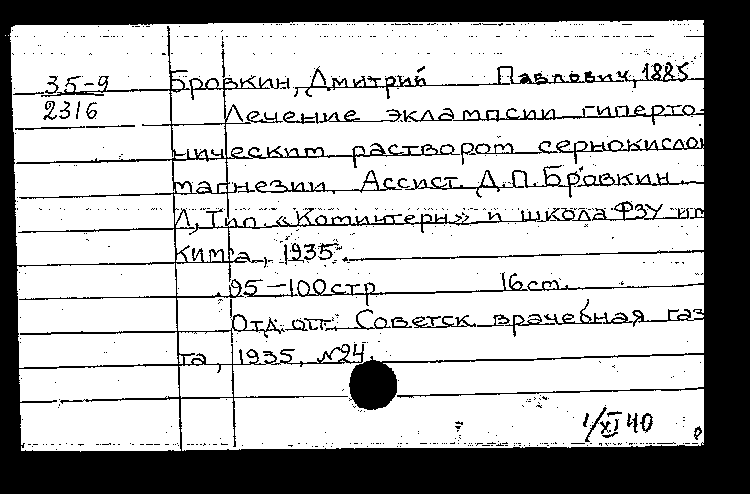 35-9
2316
Бровкин, Дмитрий Павлович, 1885
Лечение эклампсии гиперто-
ническим раствором сернокислой
магнезии. Ассист. Д.П. Бровкин.
Л, Тип. «Коминтерн» и школа ФЗУ им
КИМ'а, 1935.
95-100 стр 16 см.
Отд. отт. Советск. врачебная газ
та, 1935, №24.
1/XI 40